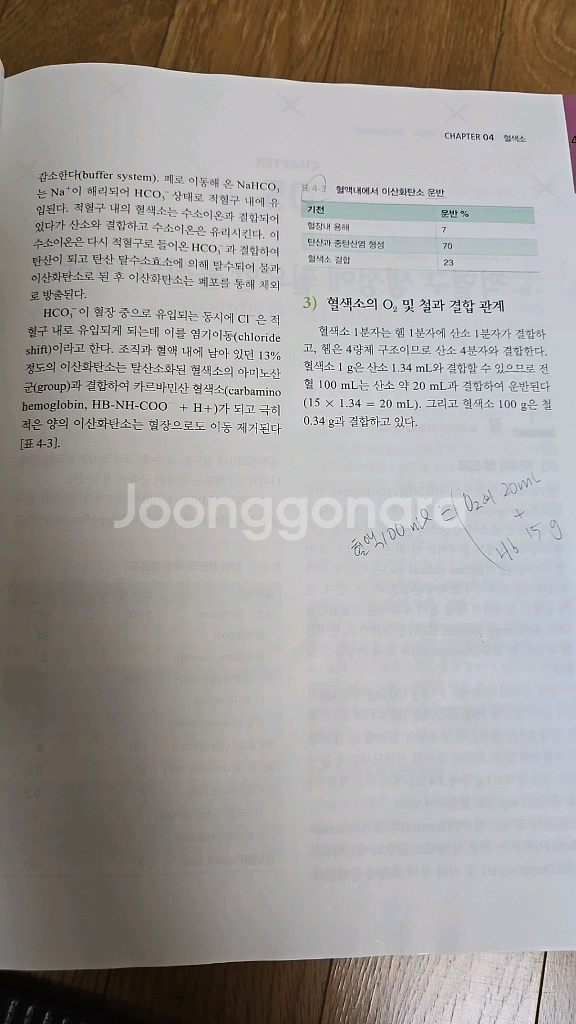 CHAPTER 04 혈색소
감소한다(buffer system). 폐로 이동해 온 NaHCO₃
는 Na⁺이 해리되어 HCO₃⁻ 상태로 적혈구 내에 유
입된다. 적혈구 내의 혈색소는 수소이온과 결합되어
있다가 산소와 결합하고 수소이온은 유리시킨다. 이
수소이온은 다시 적혈구로 들어온 HCO₃⁻과 결합하여
탄산이 되고 탄산 탈수소효소에 의해 탈수되어 물과
이산화탄소로 된 후 이산화탄소는 폐포를 통해 체외
로 방출된다.
HCO₃⁻이 혈장 중으로 유입되는 동시에 Cl⁻은 적
혈구 내로 유입되게 되는데 이를 염기이동(chloride
shift)이라고 한다. 조직과 혈액 내에 남아 있던 13%
정도의 이산화탄소는 탈산소화된 혈색소의 아미노산
군(group)과 결합하여 카르바민산 혈색소(carbamino
hemoglobin, HB-NH-COO⁻ + H+)가 되고 극히
적은 양의 이산화탄소는 혈장으로도 이동 제거된다
[표 4-3].
표 4-3 혈액내에서 이산화탄소 운반
기전 운반 %
혈장내 용해 7
탄산과 중탄산염 형성 70
혈색소 결합 23
3) 혈색소의 O₂ 및 철과 결합 관계
혈색소 1분자는 헴 1분자에 산소 1분자가 결합하
고, 헴은 4량체 구조이므로 산소 4분자와 결합한다.
혈색소 1 g은 산소 1.34 mL와 결합할 수 있으므로 전
혈 100 mL는 산소 약 20 mL과 결합하여 운반된다
(15 × 1.34 = 20 mL). 그리고 혈색소 100 g은 철
0.34 g과 결합하고 있다.
혈액 100 ml = O₂ 20ml
+
Hb 15 g
Joonggonara